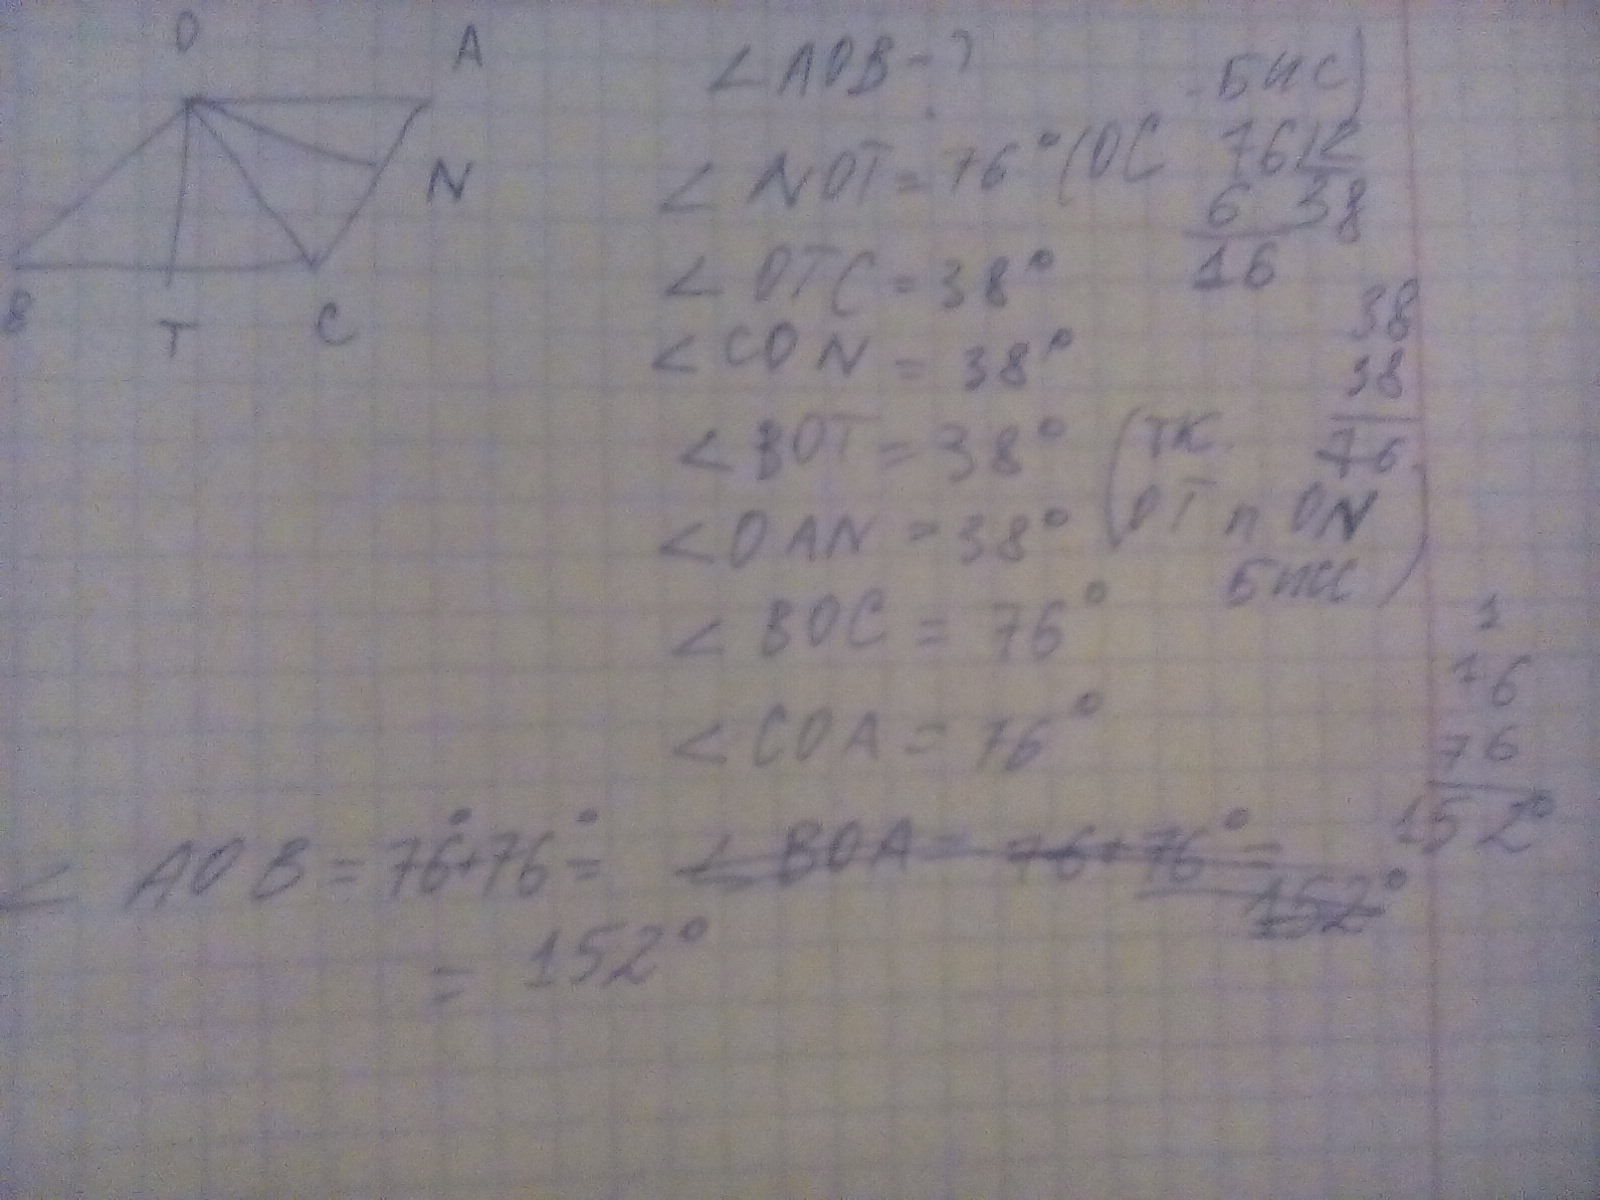 O A
N
B T C
∠AOB - ?
∠NOT = 76° (OC бис)
76|2
6 38
16
∠OTC = 38°
∠CON = 38°
38
38
76
∠BOT = 38° (тк
∠OAN = 38° OT и ON
бис)
∠BOC = 76°
∠COA = 76°
1
76
76
152°
∠AOB = 76°+76° =
= 152°
∠BOA = 76+76° =
152°